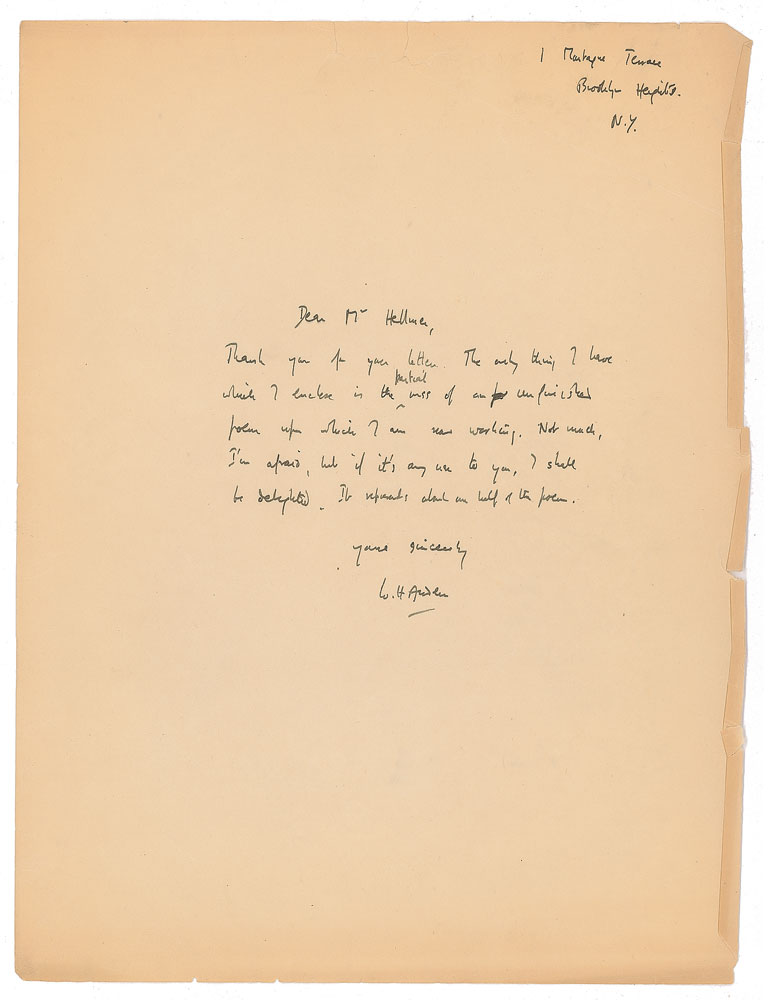 1 Montague Terrace
Brooklyn Heights.
N.Y.
Dear Mr Hellmer,
Thank you for your letter. The only thing I have
partial
which I enclose is the mss of an unfinished
poem upon which I am now working. Not much,
I'm afraid, but if it's any use to you, I shall
be delighted. It represents about one half of the poem.
yours sincerely
W.H Auden